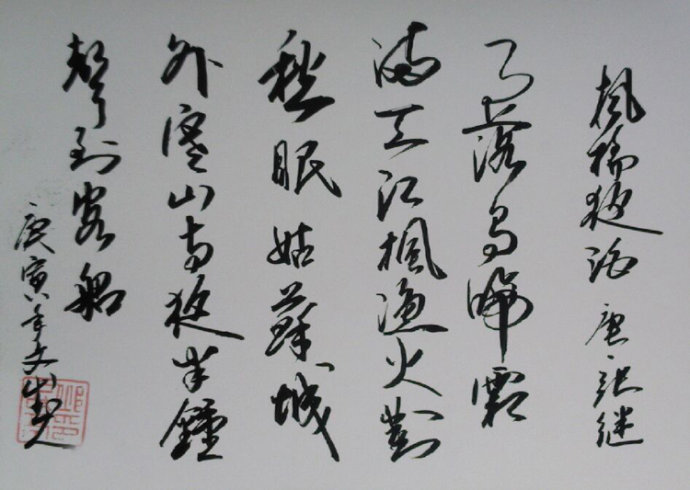 楓橋夜泊 唐 张继
月落烏啼霜
滿天江楓漁火對
愁眠姑蘇城
外寒山寺夜半鐘
聲到客船
庚寅年文